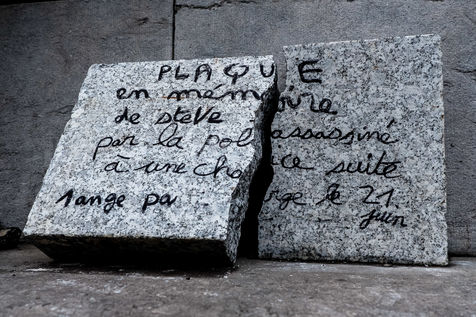 PLAQUE
en mémoire
de steve assassiné
par la police suite
à une charge le 21
juin
1 ange pa